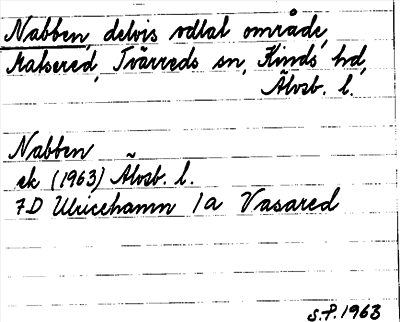 Nabben, delvis odlat område,
Matsered, Tvärreds sn, Kinds hd,
Älvsb. l.
Nabben
ek (1963) Älvsb. l.
7D Ulricehamn 1a Vasared
S.P. 1963